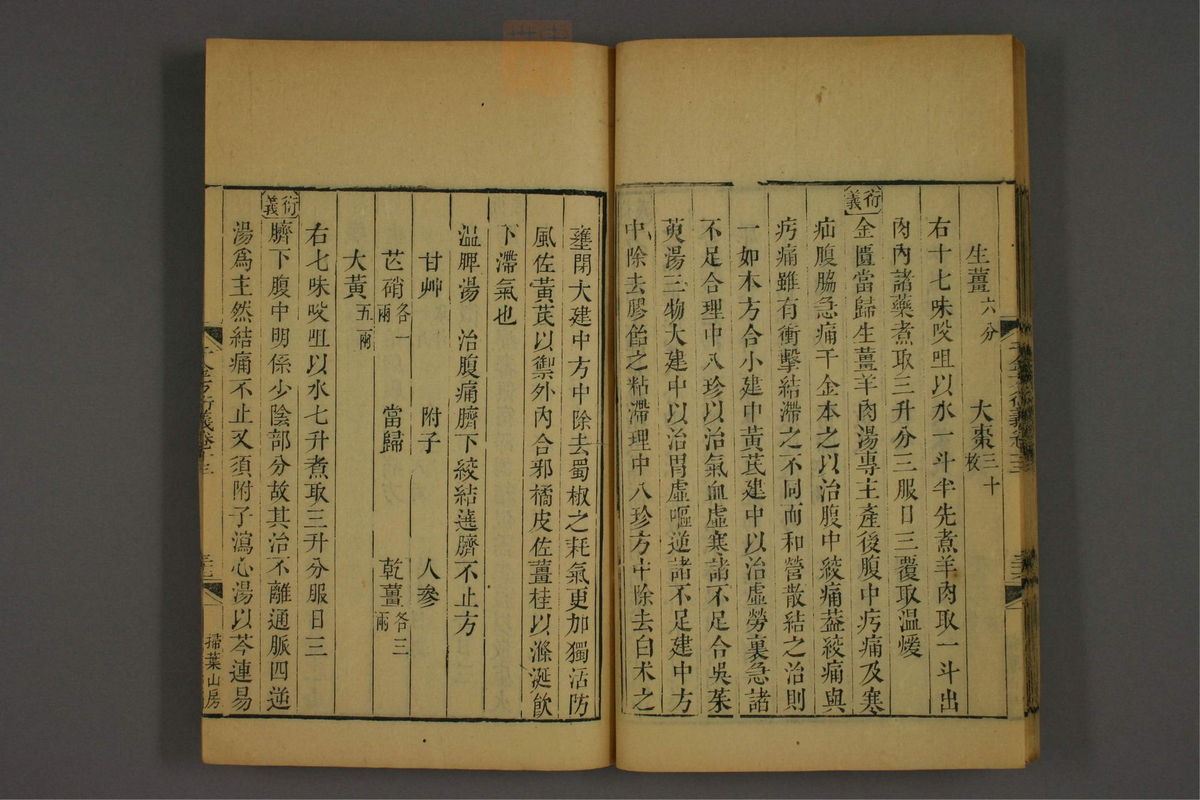 生薑六分　大棗三十枚
右十七味㕮咀以水一斗半先煮羊肉取一斗出
肉內諸藥煮取三升分三服日三覆取溫煖
衍義
金匱當歸生薑羊肉湯專主產後腹中㽲痛及寒
疝腹脇急痛千金本之以治腹中絞痛葢絞痛與
㽲痛雖有衝擊結滯之不同而和營散結之治則
一如木方合小建中黃芪建中以治虛勞裏急諸
不足合理中八珍以治氣血虛寒諸不足合吳茱
萸湯三物大建中以治胃虛嘔逆諸不足建中方
中除去膠飴之粘滯理中八珍方中除去白朮之
壅閉大建中方中除去蜀椒之耗氣更加獨活防
風佐黃芪以禦外內合邪橘皮佐薑桂以滌涎飲
下滯氣也
溫脾湯　治腹痛臍下絞結遶臍不止方
甘艸　附子　人參
芒硝各一兩　當歸　乾薑各三兩
大黃五兩
右七味㕮咀以水七升煮取三升分服日三
衍義
臍下腹中明係少陰部分故其治不離通脈四逆
湯爲主然結痛不止又須附子瀉心湯以芩連易
千金方衍義卷十三
掃葉山房